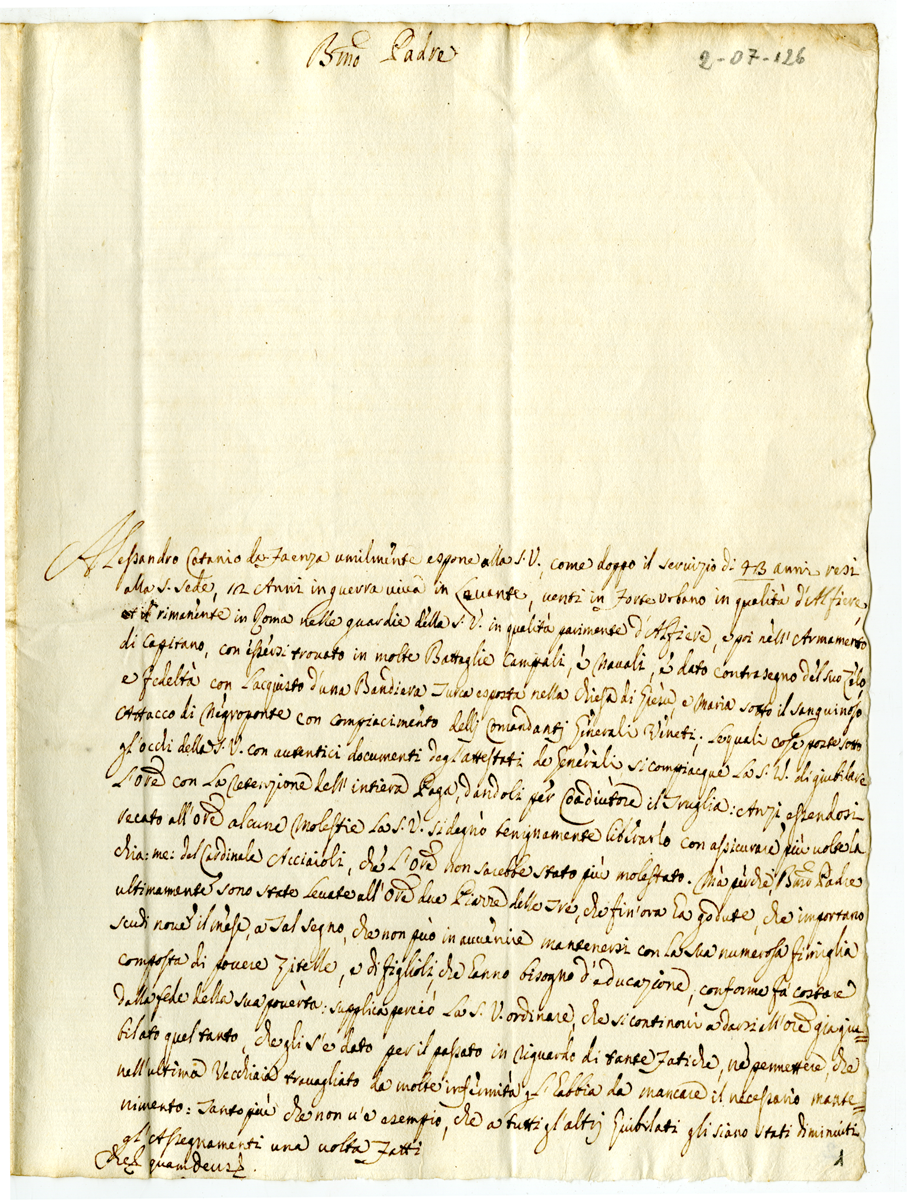 Bmõ Padre
2-07-126
Alessandro Catanio da Faenza umilmente espone alla S.V., come doppo il servizio di 43 anni resi
alla S. Sede, 12 Anni in guerra viva in Levante, venti in Forte Urbano in qualità d'Alfiere,
et il rimanente in Roma nelle guardie della S.V. in qualità parimente d'Alfiere, e poi nell'Armamento
di Capitano, con essersi trovato in molte Battaglie Campali, è Navali, è dato contrasegno del suo Zelo,
e fedeltà con l'acquisto d'una Bandiera Turca esposta nella Chiesa di Giesù, e Maria sotto il sanguinoso
Attacco di Negroponte con compiacimento delli Comandanti Generali Veneti; le quali cose poste sotto
gl'occhi della S.V. con autentici documenti degl'attestati de Generali si compiacque La S.V. di giubilare
l'Orẽ con La retenzione dell'intiera Paga, dandoli per Coadiutore il Truglia: Anzi essendosi
recato all'Orẽ alcune Molestie La S.V. si degnò benignamente liberarlo con assicurare più volte la
chia: me: del Cardinale Acciaioli, che l'Orẽ non sarebbe stato più molestato. Mà perche, Bmõ Padre
ultimamente sono state levate all'Orẽ due Piazze delle tre, che fin'ora hà godute, che importano
scudi nove il mese, a tal segno, che non può in avvenire mantenersi con la sua numerosa famiglia
composta di povere Zitelle, e di figlioli, che hanno bisogno d'educazione, conforme fà costare
dalla fede della sua povertà: supplica perciò La S.V. ordinare, che si continovi a darsi all'Orẽ già giu=
bilato quel tanto, che gli s'è dato per il passato in riguardo di tante fatiche, ne permettere, che
nell'ultima Vecchiaia travagliato da molte infermità gl'habbia da mancare il necessario mante=
nimento: tanto più che non v'è esempio, che a tutti gl'altri Giubilati gli siano stati diminuiti
gl'Assegnamenti una volta fatti
Che quam Deus
1